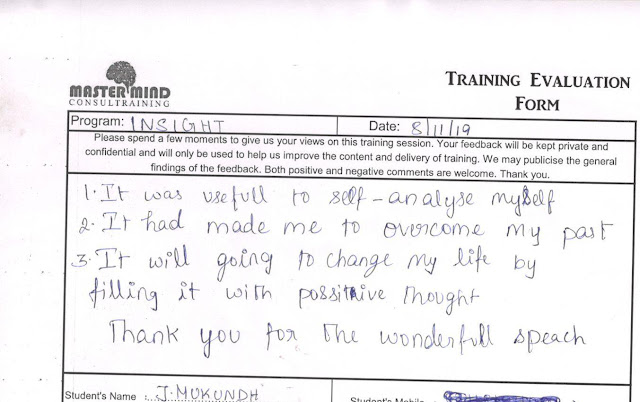 MASTER MIND
CONSULTRAINING
TRAINING EVALUATION
FORM
Program: INSIGHT
Date: 8/11/19
Please spend a few moments to give us your views on this training session. Your feedback will be kept private and
confidential and will only be used to help us improve the content and delivery of training. We may publicise the general
findings of the feedback. Both positive and negative comments are welcome. Thank you.
1. It was usefull to self-analyse myself
2. It had made me to overcome my past
3. It will going to change my life by
filling it with possitive thought
Thank you for the wonderfull speach
Student's Name : J.MUKUNDH
Student's Mobile